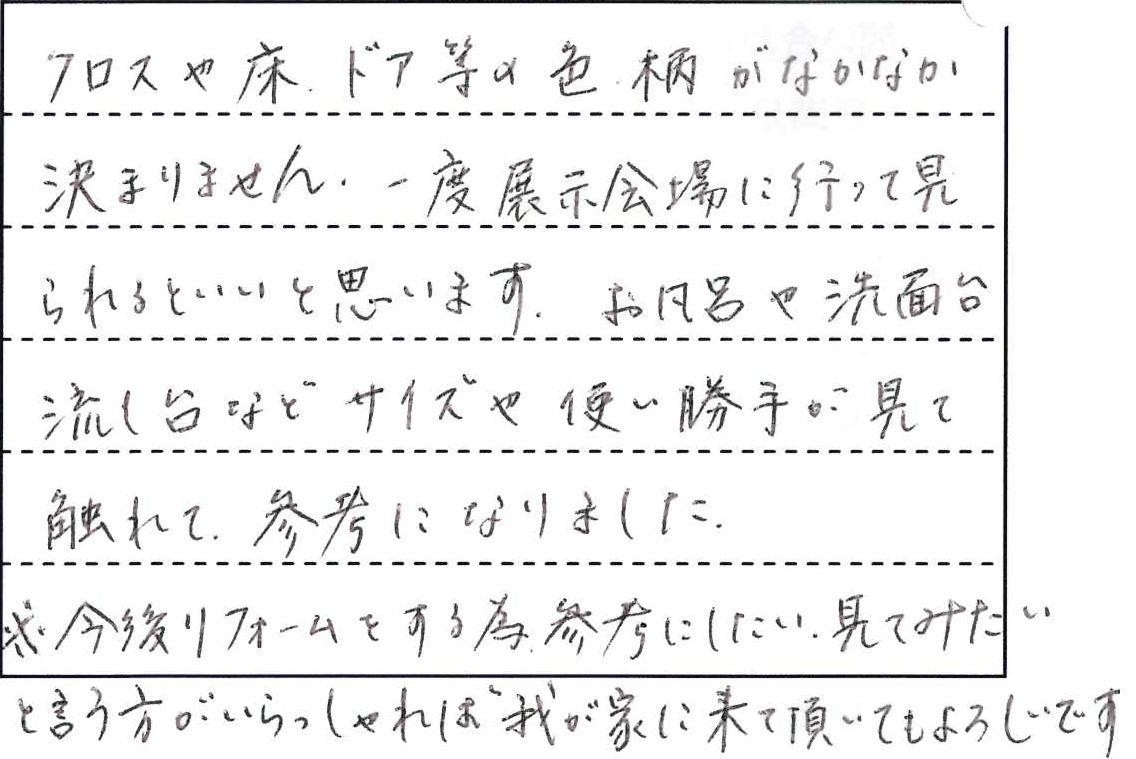 クロスや床、ドア等の色、柄がなかなか
決まりません。一度展示会場に行って見
られるといいと思います。お風呂や洗面台
流し台などサイズや使い勝手が見て
触れて、参考になりました。
※今後リフォームをする為、参考にしたい、見てみたい
と言う方がいらっしゃれば我が家に来て頂いてもよろしいです